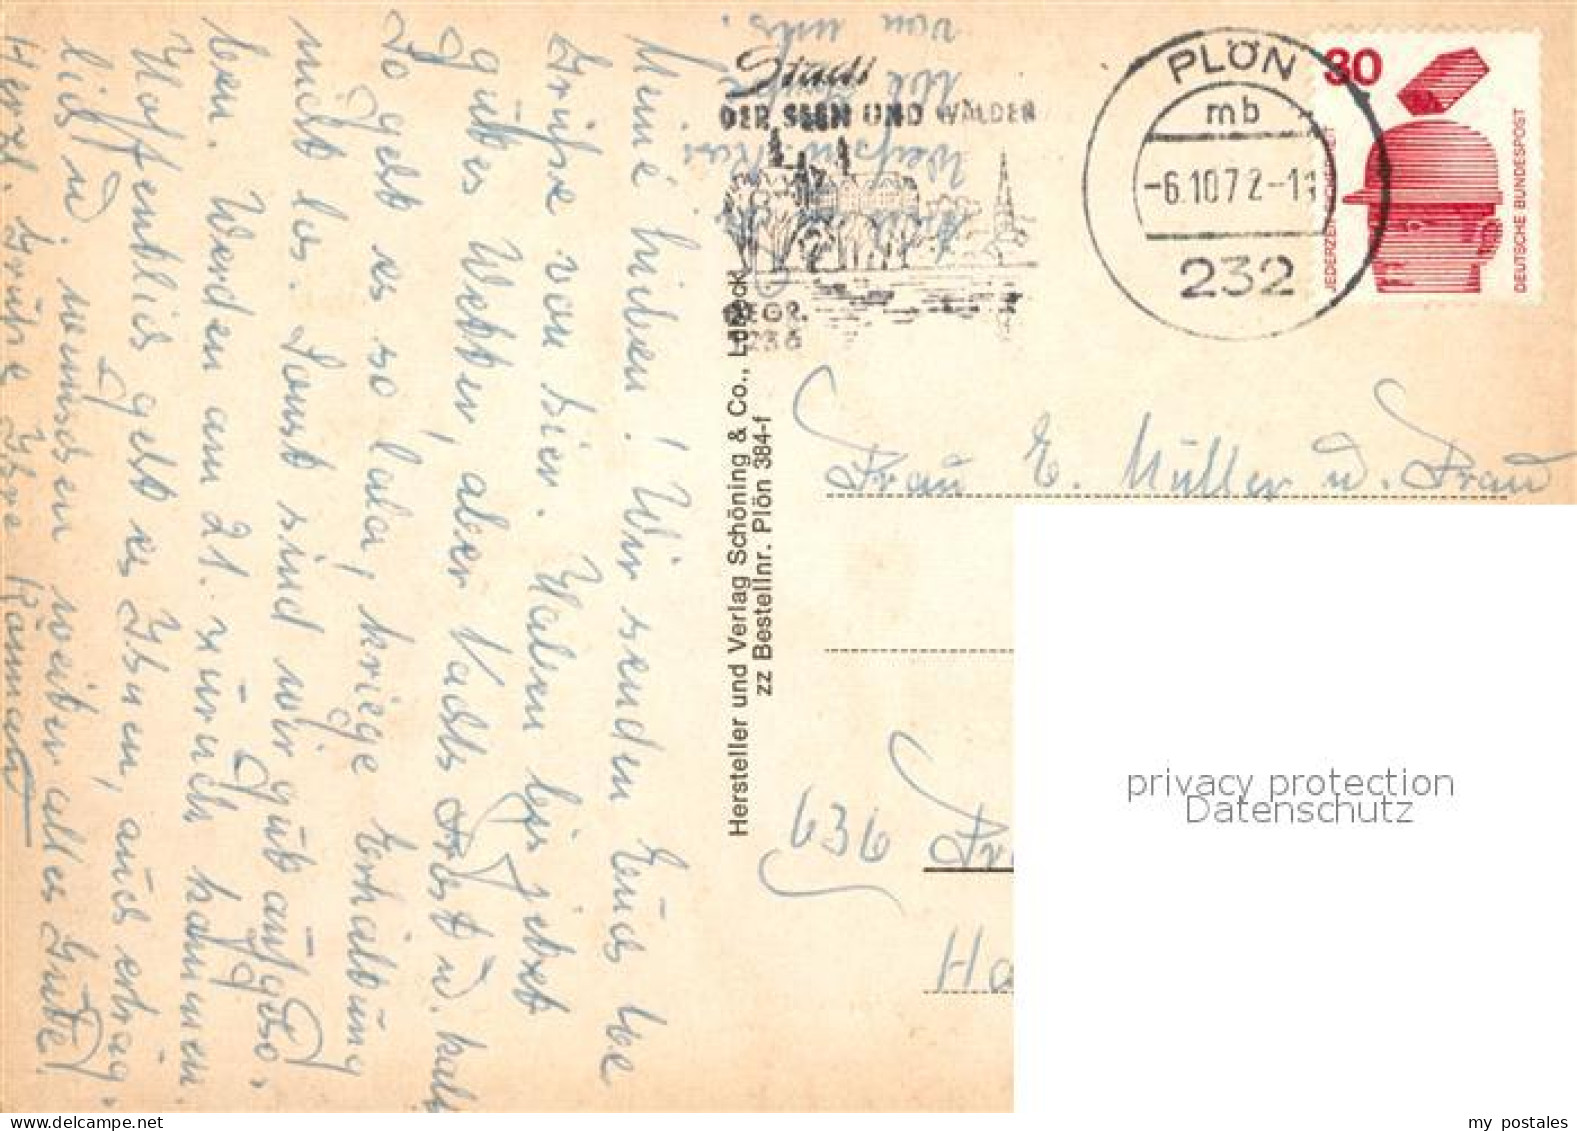 Meine Lieben! Wir senden Euch l
Grüße von hier. Haben hier jetzt
gutes Wetter, aber Nachts Frost u. kalt
So geht es so lala, kriege Erhaltung
nicht los. Sonst sind wir gut aufgeho-
ben. Werden am 21. zurück kommen.
Hoffentlich geht es Ihnen, auch erträg-
lich u. wünschen weiter alles Gute!
Herzl. Grüße Ihre
von uns.
Stadt
DER SEEN UND WÄLDER
GEGR.
1236
PLÖN
mb
-6.10.72-11
232
30
JEDERZEIT SICHERHEIT
DEUTSCHE BUNDESPOST
Hersteller und Verlag Schöning & Co., Lübeck
zz Bestellnr. Plön 384-f
Frau E. Müller u. Frau
636 Fr
Ha
privacy protection
Datenschutz
my postales